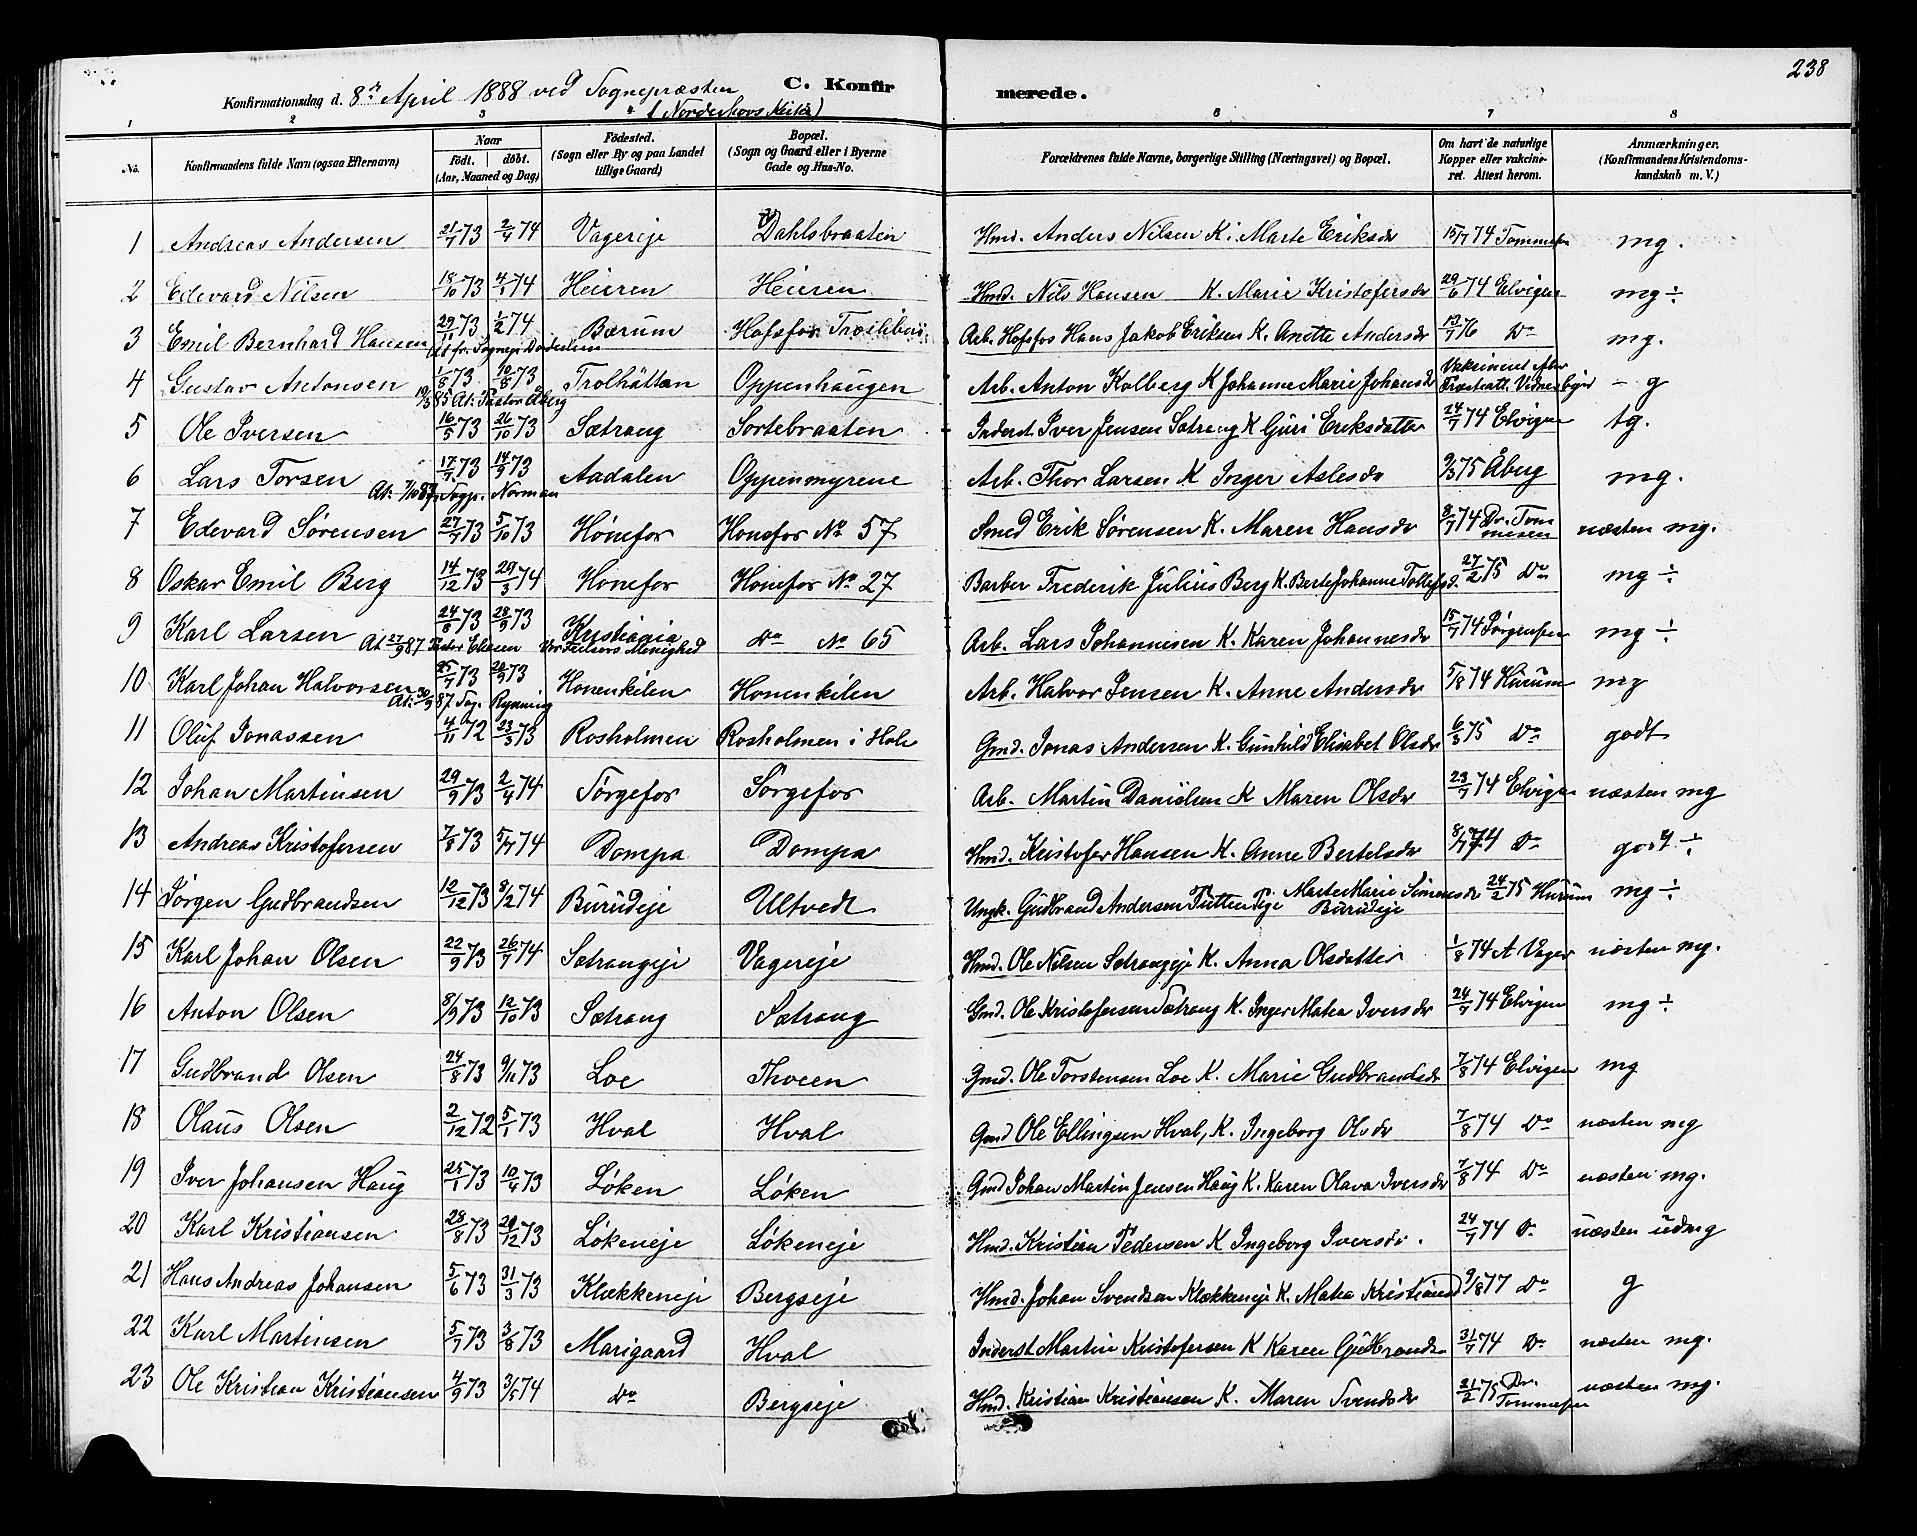 238
Konfirmationsdag d. 8de April 1888 ved Sognepræsten C. Konfirmerede.
(Norderhovs Kirke)
1 2 3 4 6 7 8
No. Konfirmandens fulde Navn (ogsaa Efternavn) Naar født. døbt. (Aar, Maaned og Dag) Fødested. (Sogn eller By og paa Landet tillige Gaard) Bopæl. (Sogn og Gaard eller i Byerne Gade og Hus-No. Forældrenes fulde Navne, borgerlige Stilling (Næringsvei) og Bopæl. Om havt de naturlige Kopper eller vakcineret. Attest herom. Anmærkninger. (Konfirmandens Kristendomskundskab m. V.)
1 Andreas Andersen 21/7 73 2/4 74 Vagereje Dahlsbraaten Hmd. Anders Nilsen K. Marte Eriksdr 15/7 74 Tommesen mg.
2 Edevard Nilsen 18/10 73 4/1 74 Heieren Heieren Hmd. Nils Hansen K. Marie Kristofersdr 29/6 74 Elvigen mg ÷
3 Emil Bernhard Hansen 29/11 73 1/2 74 Bærum Hofsfos Træsliberi Arb. Hofsfos Hans Jakob Eriksen K. Anette Andersdr 13/7 76 Do mg.
4 Gustav Antonsen 1/8 73 10/8 73 Trolhättan Oppenhaugen Arb. Anton Kolberg K Johanne Marie Johansdr Vaksineret efter Præsteatt. – g
19/3 85 At: Pastor Åberg
5 Ole Iversen 16/5 73 26/10 73 Sætrang Sortebraaten Inderst. Iver Jensen Satrang K Guri Eriksdatter 24/7 74 Elvigen tg.
6 Lars Torsen 17/7 73 14/9 73 Aadalen Oppenmyrene Arb. Thor Larsen K Inger Aslesdr 9/3 75 Åberg mg.
At: 7/10 87 Sogp. Norman
7 Edevard Sørensen 27/7 73 5/10 73 Hønefos Honefos No 57 Smed Erik Sørensen K. Maren Hansdr 8/7 74 Dr. Tommesen næsten mg.
8 Oskar Emil Berg 14/12 73 29/3 74 Honefos Honefos No 27 Barber Frederik Julius Berg K. Berte Johanne Tollefsd. 27/2 75 Do mg ÷
9 Karl Larsen 24/8 73 28/9 73 Kristiania Do No 65 Arb. Lars Johannesen K. Karen Johannesdr 15/7 74 Jørgensen mg ÷
At 27/9 87 Pastor Eliesen Vor Frelsers Menighed
10 Karl Johan Halvorsen 25/7 73 28/9 73 Honenkilen Honenkilen Arb. Halvor Jensen K. Anne Andersdr 5/8 74 Hurum mg
At: 30/9 87 Sog. Rynning
11 Oluf Jonassen 4/11 72 23/3 73 Rosholmen Rosholmen i Hole Gmd. Jonas Andersen K. Gunhild Elisabet Olsdr 6/3 75 Do godt
12 Johan Martinsen 29/9 73 2/4 74 Sørgefos Sørgefos Arb. Martin Danielsen K Maren Olsdr 23/7 74 Elvigen næsten mg
13 Andreas Kristofersen 7/8 73 5/4 74 Dompa Dompa Hmd. Kristofer Hansen K. Anne Bertelsdr 8/7 74 Do godt ÷
14 Jørgen Gudbrandsen 12/12 73 8/2 74 Burudeje Ultvedt Ungk. Gudbrand Andersen Putten Pige Marte Marie Simensdr Burudeje 24/2 75 Hurum mg ÷
15 Karl Johan Olsen 22/9 73 26/7 74 Sætrangeje Vagereje Hmd. Ole Nilsen Sætrangeje K. Anna Olsdatter 1/8 74 A Vager næsten mg.
16 Anton Olsen 8/9 73 12/10 73 Sætrang Sætrang Gmd. Ole Kristofersen Sætrang K. Inger Matea Iversdr 24/7 74 Elvigen mg ÷
17 Gudbrand Olsen 24/8 73 9/11 73 Loe Thveen Gmd. Ole Torstensen Loe K. Marie Gudbrandsdr 7/8 74 Elvigen mg
18 Olaus Olsen 2/12 72 5/1 73 Hval Hval Gmd Ole Ellingsen Hval, K. Ingeborg Olsdr 7/8 74 Do næsten mg
19 Iver Johansen Haug 25/1 73 10/4 73 Løken Løken Gmd Johan Martin Jensen Haug K. Karen Olava Iversdr 7/8 74 Do næsten mg.
20 Karl Kristiansen 28/8 73 29/12 73 Løkeneje Løkeneje Hmd. Kristian Pedersen K Ingeborg Iversdr. 24/7 74 Do næsten udmg
21 Hans Andreas Johansen 5/6 73 31/3 73 Klækkeneje Bergseje Hmd. Johan Svendsen Klækkeneje K. Matea Kristiansd 9/8 77 Do g
22 Karl Martinsen 5/7 73 3/8 73 Marigaard Hval Inderst Martin Kristofersen K Karen Gudbrandsd. 31/7 74 Do næsten mg.
23 Ole Kristian Kristiansen 4/9 73 3/5 74 Do Bergseje Hmd. Kristian Kristiansen K. Maren Svendsdr 21/2 75 Dr. Tommesen næsten mg.